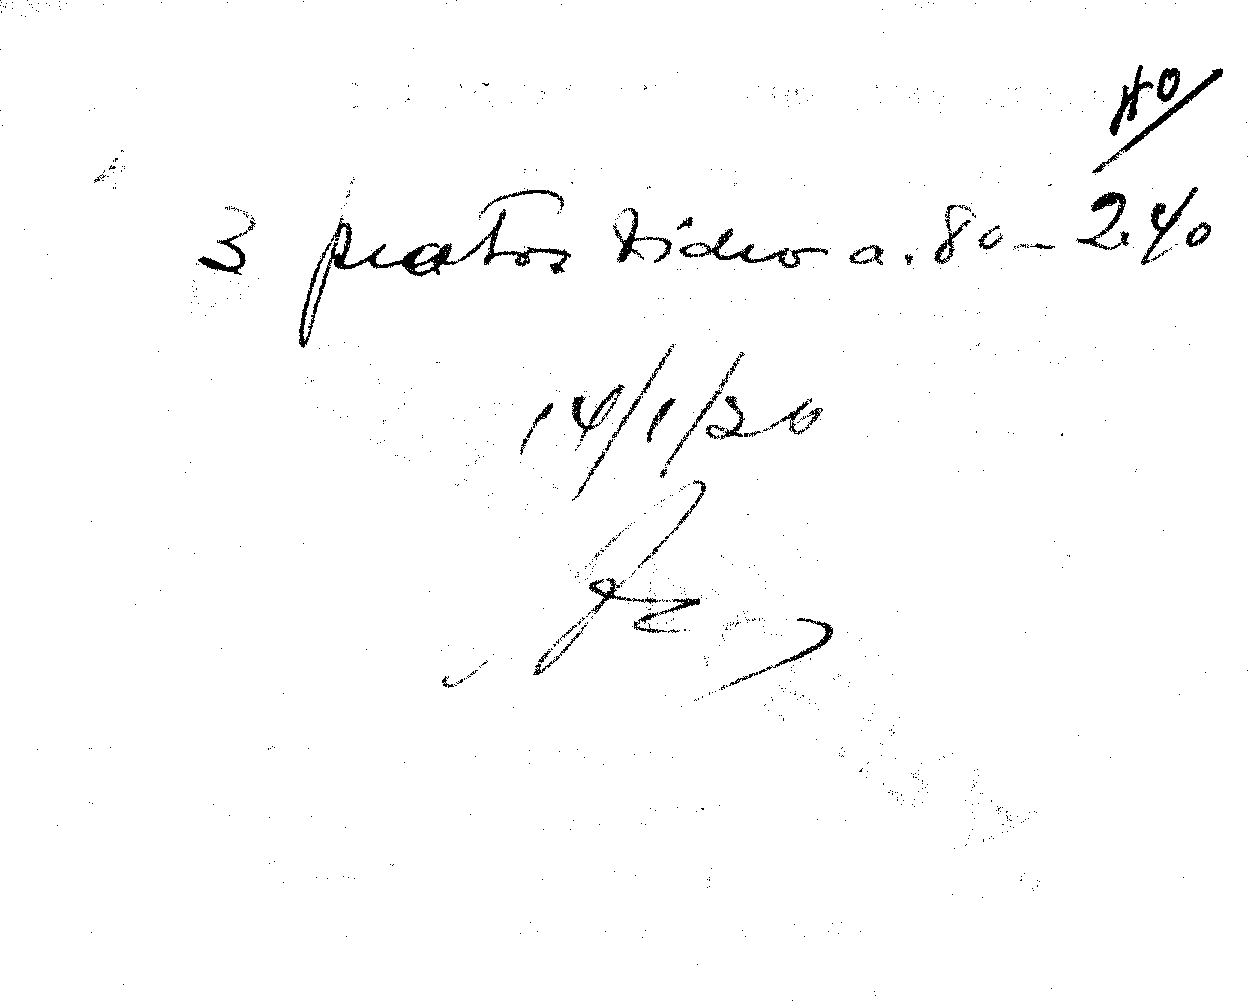 40
3 pratos vidro a .80 — 2.40
14/1/20